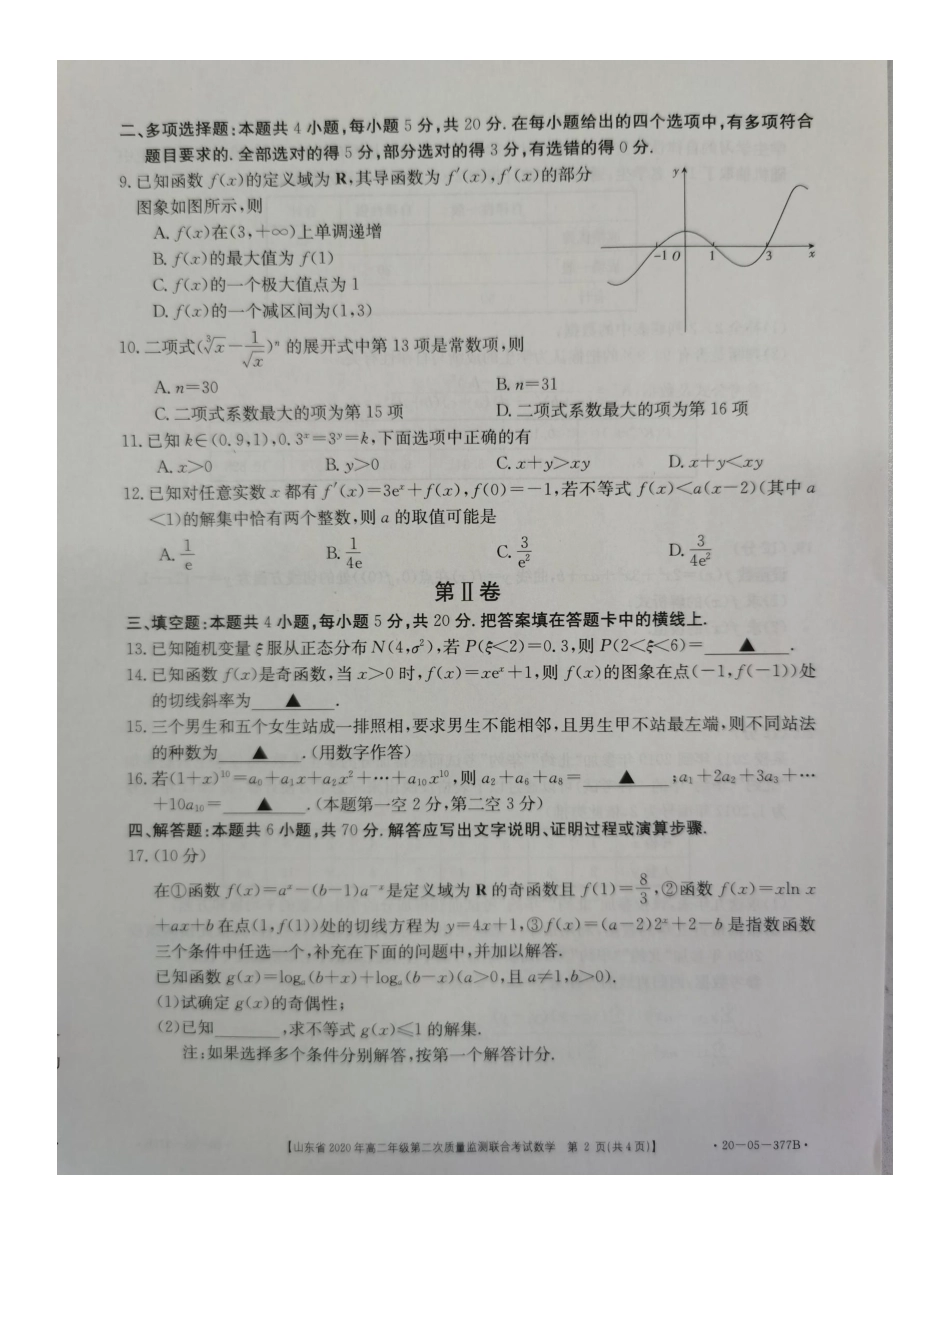 二、多项选择题:本题共 4 小题,每小题 5 分,共 20 分.在每小题给出的四个选项中,有多项符合
题目要求的.全部选对的得 5 分,部分选对的得 3 分,有选错的得 0 分.
9.已知函数 f(x)的定义域为 R,其导函数为 f′(x),f′(x)的部分
图象如图所示,则
A. f(x)在(3,+∞)上单调递增
B. f(x)的最大值为 f(1)
C. f(x)的一个极大值点为 1
D. f(x)的一个减区间为(1,3)
y
-1 O 1 3 x
10.二项式(∛x-1/√x)ⁿ 的展开式中第 13 项是常数项,则
A. n=30 B. n=31
C. 二项式系数最大的项为第 15 项 D. 二项式系数最大的项为第 16 项
11.已知 k∈(0.9,1),0.3ˣ=3ʸ=k,下面选项中正确的有
A. x>0 B. y>0 C. x+y>xy D. x+y<xy
12.已知对任意实数 x 都有 f′(x)=3eˣ+f(x),f(0)=-1,若不等式 f(x)<a(x-2)(其中 a
<1)的解集中恰有两个整数,则 a 的取值可能是
A. 1/e B. 1/4e C. 3/e² D. 3/4e²
第Ⅱ卷
三、填空题:本题共 4 小题,每小题 5 分,共 20 分.把答案填在答题卡中的横线上.
13.已知随机变量 ξ 服从正态分布 N(4,σ²),若 P(ξ<2)=0.3,则 P(2<ξ<6)=▲.
14.已知函数 f(x)是奇函数,当 x>0 时,f(x)=xeˣ+1,则 f(x)的图象在点(-1,f(-1))处
的切线斜率为▲.
15.三个男生和五个女生站成一排照相,要求男生不能相邻,且男生甲不站最左端,则不同站法
的种数为▲.(用数字作答)
16.若(1+x)¹⁰=a₀+a₁x+a₂x²+⋯+a₁₀x¹⁰,则 a₂+a₆+a₈=▲;a₁+2a₂+3a₃+⋯
+10a₁₀=▲.(本题第一空 2 分,第二空 3 分)
四、解答题:本题共 6 小题,共 70 分.解答应写出文字说明、证明过程或演算步骤.
17.(10 分)
在①函数 f(x)=aˣ-(b-1)a⁻ˣ是定义域为 R 的奇函数且 f(1)=8/3,②函数 f(x)=xln x
+ax+b 在点(1,f(1))处的切线方程为 y=4x+1,③f(x)=(a-2)2ˣ+2-b 是指数函数
三个条件中任选一个,补充在下面的问题中,并加以解答.
已知函数 g(x)=logₐ(b+x)+logₐ(b-x)(a>0,且 a≠1,b>0).
(1)试确定 g(x)的奇偶性;
(2)已知________,求不等式 g(x)≤1 的解集.
注:如果选择多个条件分别解答,按第一个解答计分.
【山东省 2020 年高二年级第二次质量监测联合考试数学 第 2 页(共 4 页)】 ·20-05-377B·